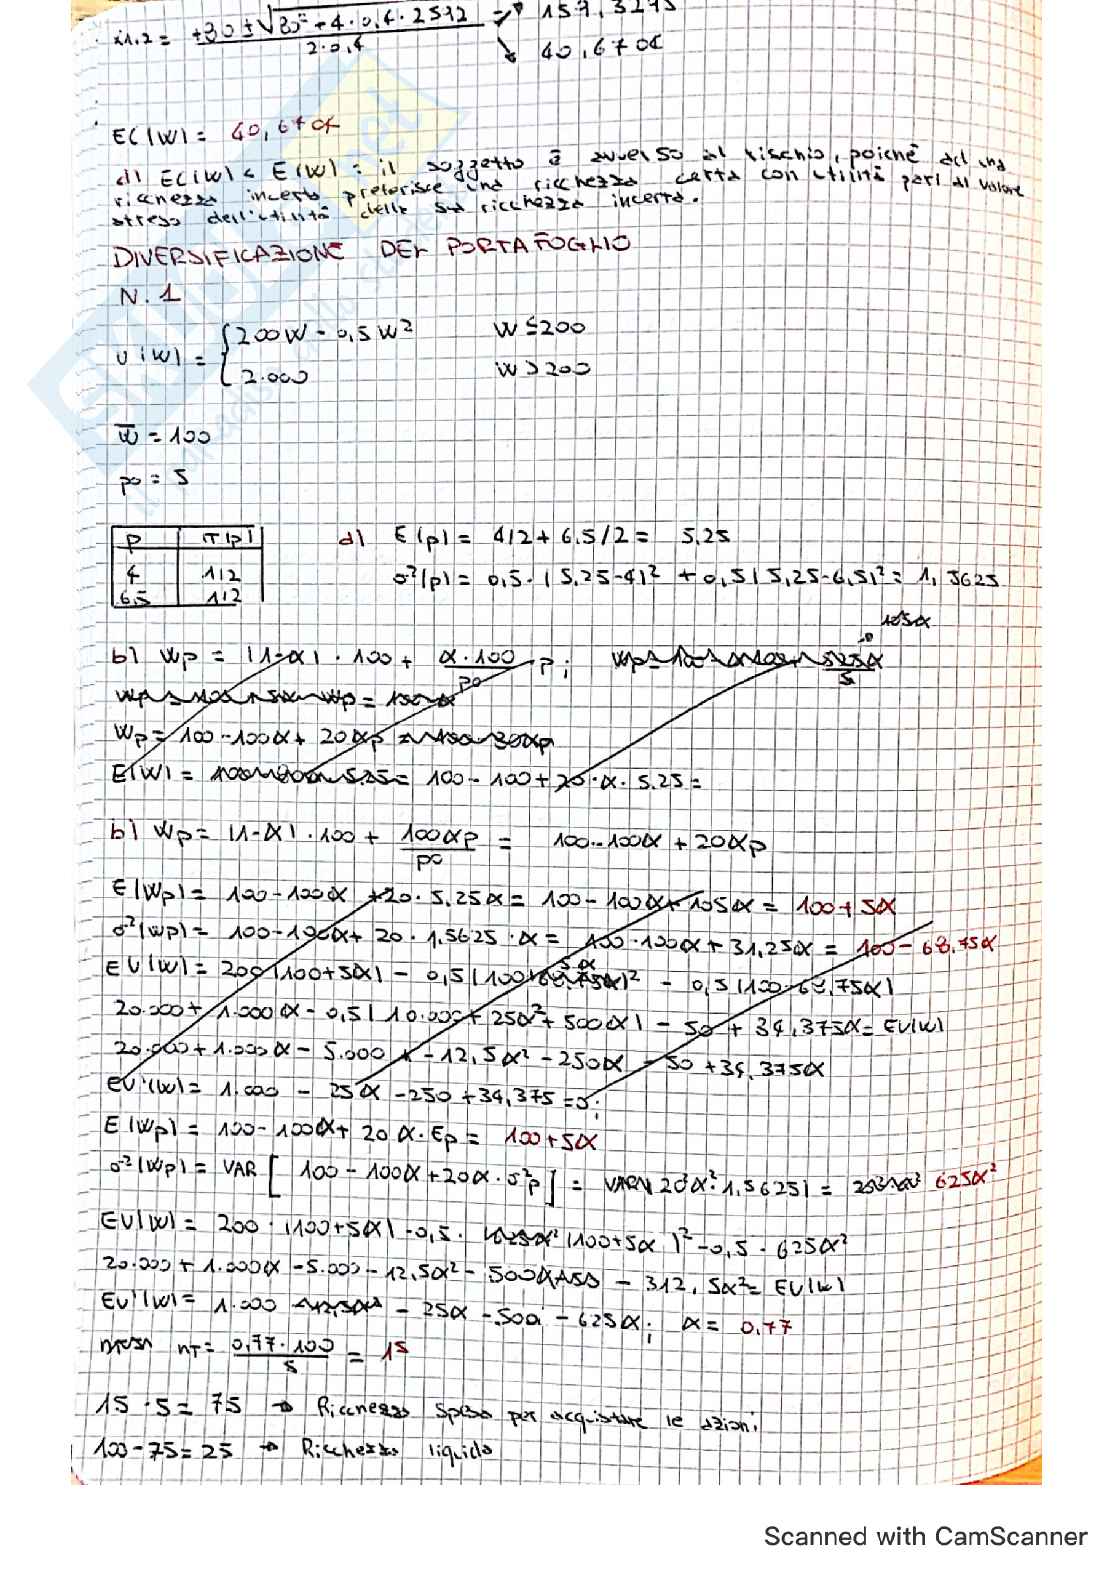 x1,2 = +80 ± √80² - 4 · 0,4 · 2592 → 159,3295
2·0,4 ↘ 40,6704
EC(W) = 40,6704
d) EC(W) < E(W) = il soggetto è avverso al rischio, poiché ad una
ricchezza incerta preferisce una ricchezza certa con utilità pari al valore
atteso dell'utilità della sua ricchezza incerta.
DIVERSIFICAZIONE DEL PORTAFOGLIO
N. 1
U(W) = { 200W - 0,5W² W ≤ 200
2.000 W > 200
w̅ = 100
po = 5
p π(p)
4 1/2
6,5 1/2
a) E(p) = 4/2 + 6,5/2 = 5,25
σ²(p) = 0,5 · (5,25-4)² + 0,5(5,25-6,5)² = 1,5625
105α
b) Wp = (1-α) · 100 + α·100/po p;
Wp = 100 - 100α + 20αp
E(W) = 100 - 100 + 20 · α · 5,25 =
b) Wp = (1-α) · 100 + 100αp/po = 100 - 100α + 20αp
E(Wp) = 100 - 100α + 20 · 5,25α = 100 - 100α + 105α = 100 + 5α
σ²(Wp) = 100 - 100α + 20 · 1,5625 · α = 100 · 100α + 31,25α = 100 - 68,75α
EU(W) = 200(100+5α) - 0,5(100+5α)² - 0,5(100-68,75α)
20.000 + 1.000α - 0,5(10.000 + 25α² + 500α) - 50 + 34,375α = EU(W)
20.000 + 1.000α - 5.000 - 12,5α² - 250α - 50 + 34,375α
EU'(W) = 1.000 - 25α - 250 + 34,375 = 0;
E(Wp) = 100 - 100α + 20α · Ep = 100 + 5α
σ²(Wp) = VAR [ 100 - 100α + 20α · σ²p ] = VAR(20²α² · 1,5625) = 625α²
EU(W) = 200 · (100+5α) - 0,5 · (100+5α)² - 0,5 · 625α²
20.000 + 1.000α - 5.000 - 12,5α² - 500α - 312,5α² = EU(W)
EU'(W) = 1.000 - 25α - 500 - 625α; α = 0,77
nT = 0,77·100/5 = 15
15 · 5 = 75 → Ricchezza spesa per acquistare le azioni
100 - 75 = 25 → Ricchezza liquida
Scanned with CamScanner